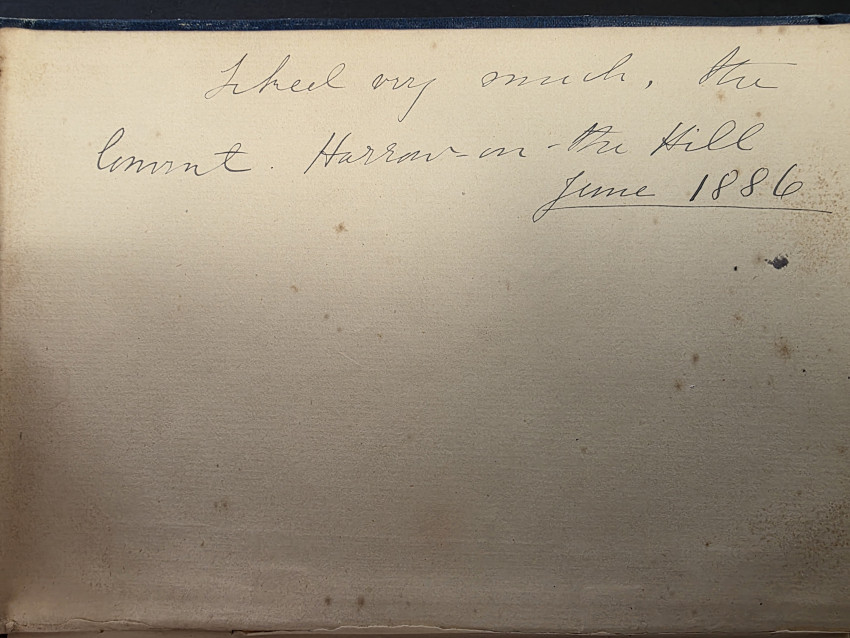 liked very much, the
Convent. Harrow-on-the Hill
June 1886